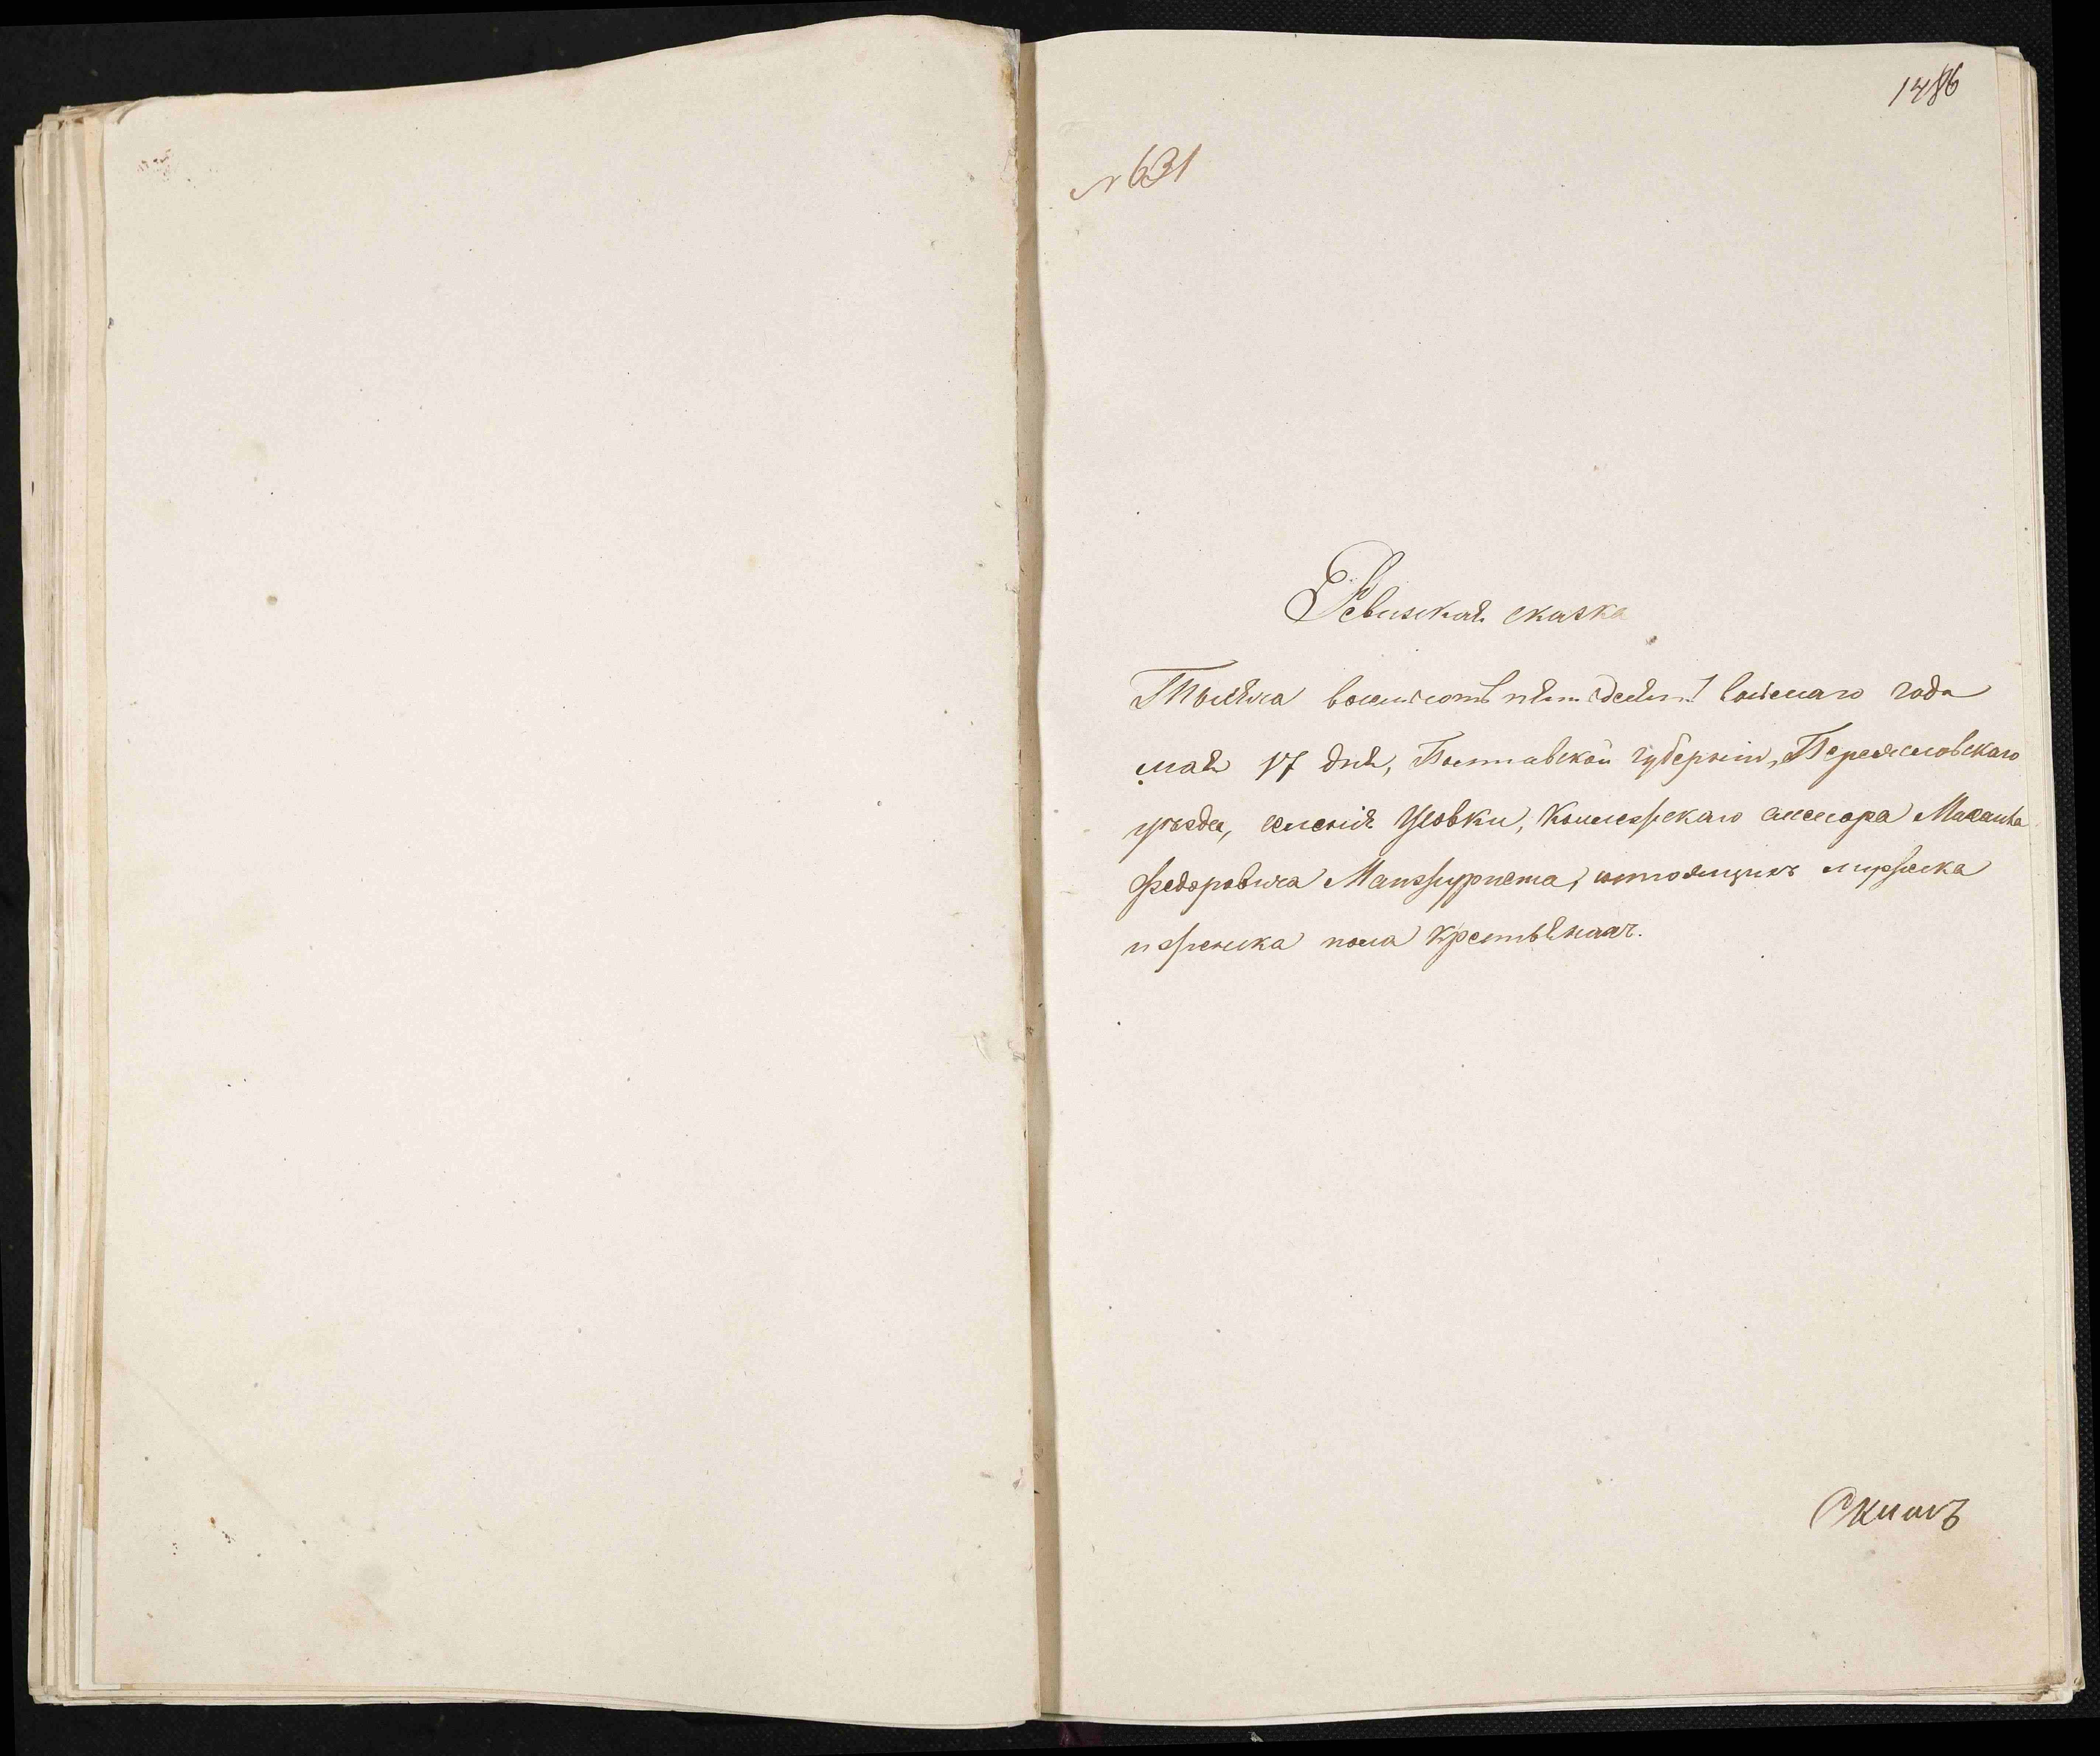 1486
№ 631
Ревизская сказка
Тысяча восемьсотъ пятьдесятъ восьмаго года
мая 17 дня, Полтавской губерніи, Переяславскаго
уѣзда, селенія Усовки, Коллежскаго асессора
Федоровича состоящихъ мужеска
и женска пола крестьянахъ.